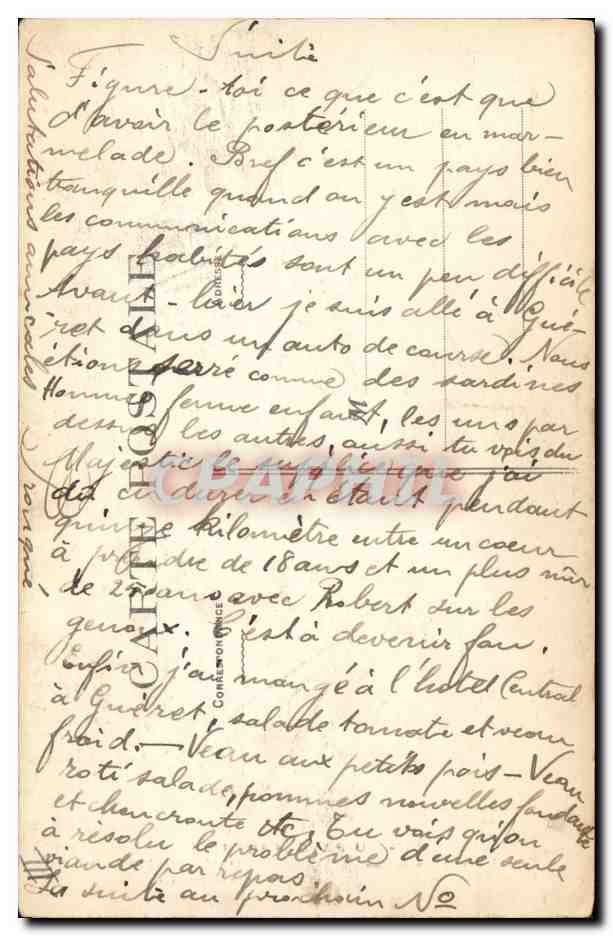 Suite
Figure-toi ce que c'est que
d'avoir le postérieur en mar-
melade. Bref c'est un pays bien
tranquille quand on y est mais
les communications avec les
pays habités sont un peu difficile
Avant-hier je suis allé à Gué-
ret dans un auto de course. Nous
étions serré comme des sardines
Homme femme enfant, les uns par
dessus les autres, aussi tu vois du
Majestic le supplice que j'ai
dû endurer en étant pendant
quinze kilomètre entre un coeur
à prendre de 18 ans et un plus mûr
de 25 ans avec Robert sur les
genoux. C'est à devenir fou.
Enfin j'ai mangé à l'hotel Central
à Guéret, salade tomate et veau
froid. — Veau aux petits pois — Veau
roti salade, pommes nouvelles fondante
et choucroute etc, Tu vois qu'on
à résolu le problème d'une seule
viande par repas
III La suite au prochain No
Salutations amicales
CARTE POSTALE
CORRESPONDANCE
ADRESSE
M
CPAPHIL